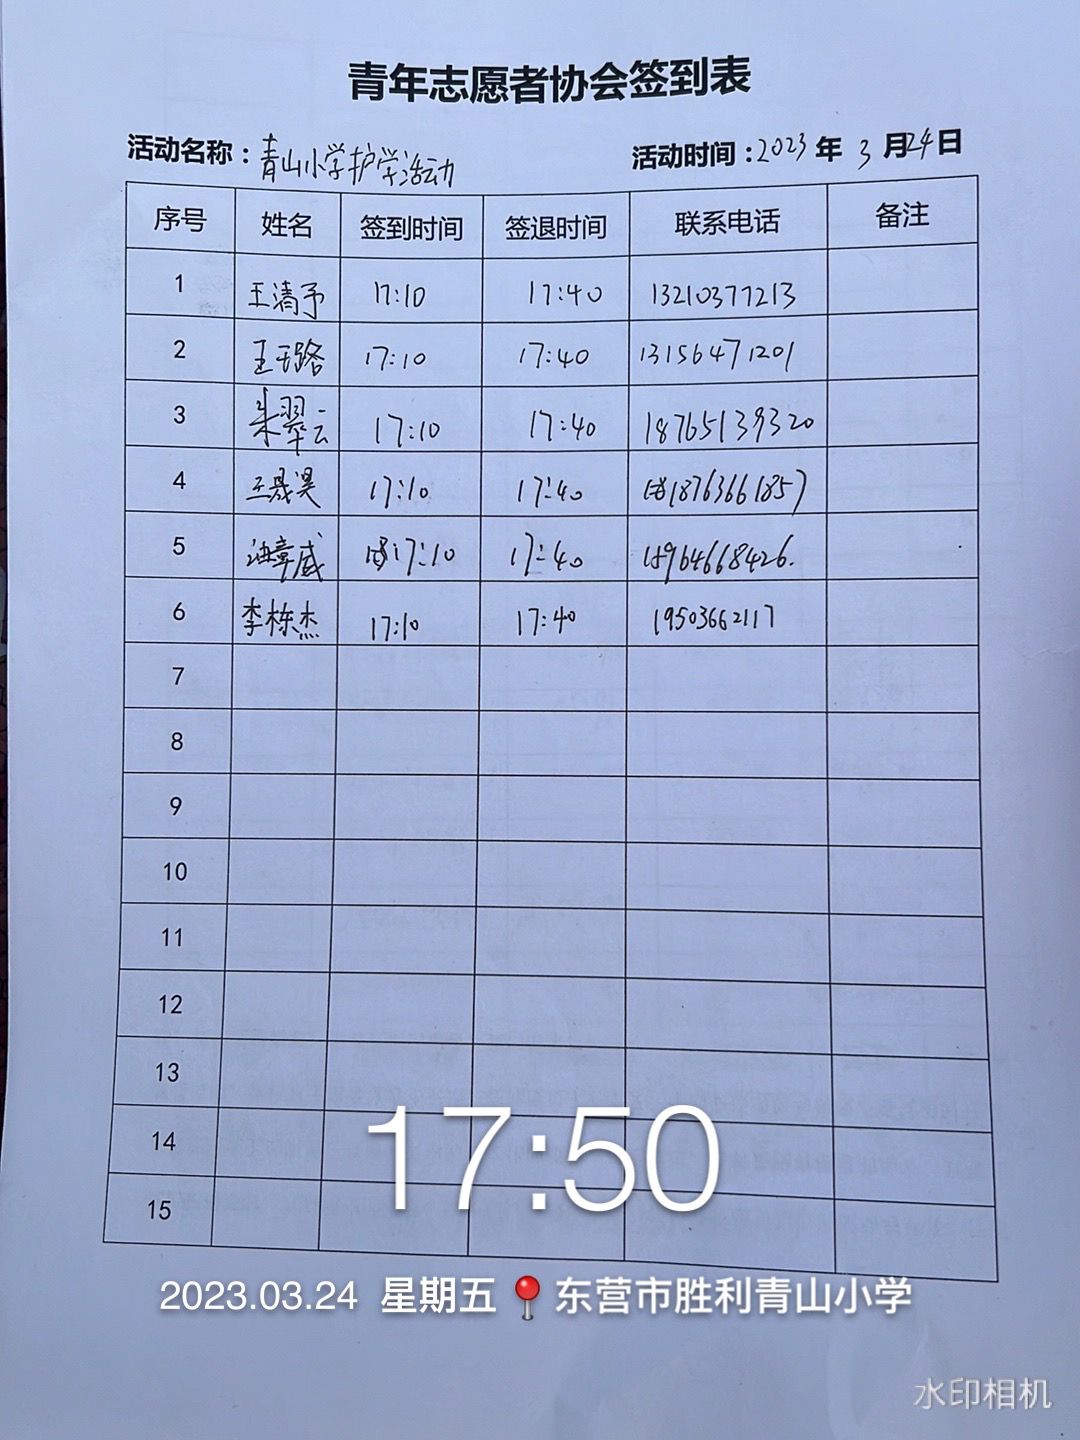 青年志愿者协会签到表
活动名称：青山小学护学活动 活动时间：2023 年 3 月 24 日
序号 姓名 签到时间 签退时间 联系电话 备注
1 王清予 17:10 17:40 13210377213
2 王路 17:10 17:40 13156471201
3 朱翠云 17:10 17:40 18765139320
4 王晟昊 17:10 17:40 18763661857
5 威 17:10 17:40 15964668426.
6 李栋杰 17:10 17:40 19503662117
7
8
9
10
11
12
13
14
15
17:50
2023.03.24 星期五 东营市胜利青山小学
水印相机